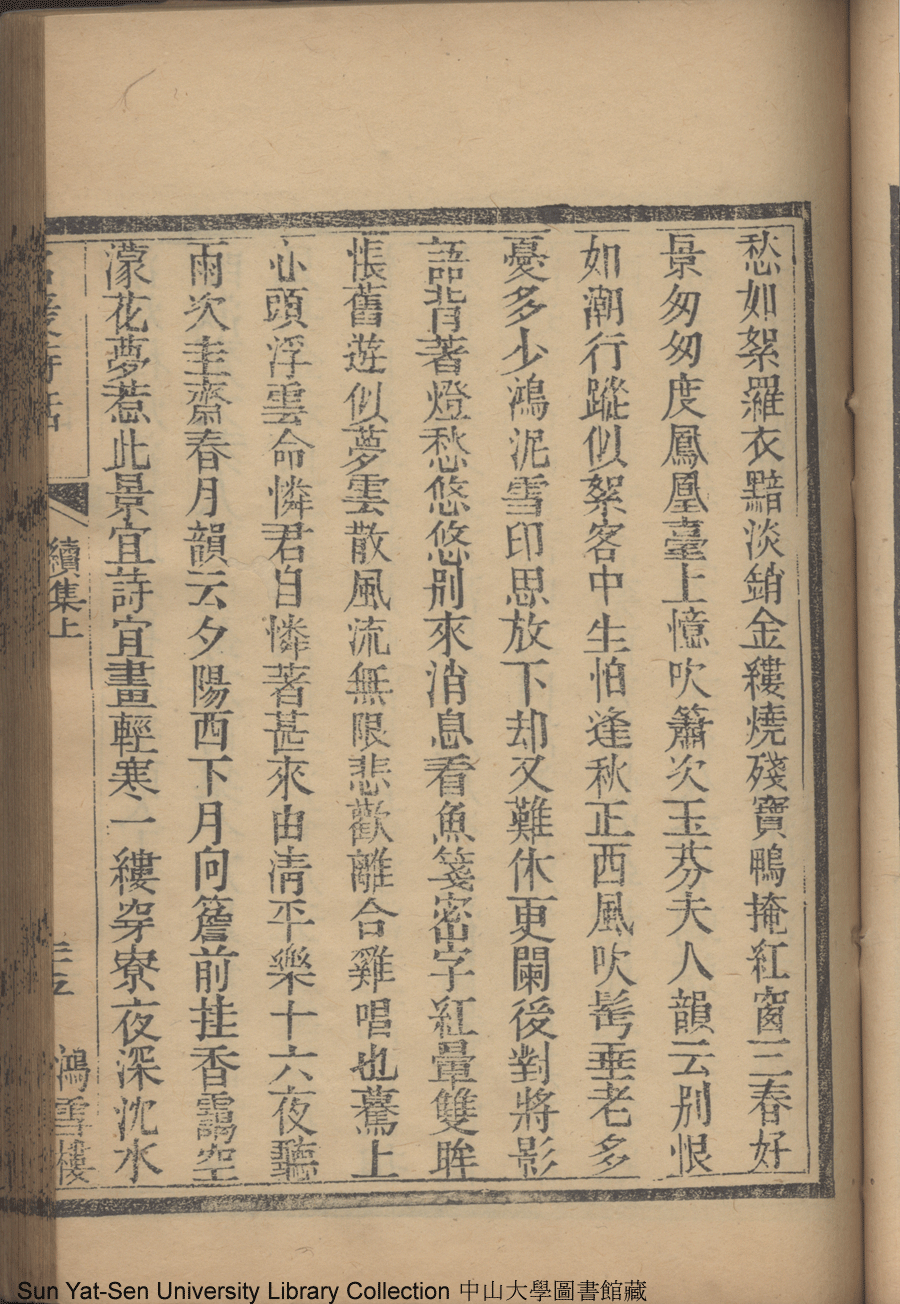 愁如絮羅衣黯淡銷金縷燒殘寶鴨掩紅窗三春好
景匆匆度鳳凰臺上憶吹簫次玉芬夫人韻云别恨
如潮行蹤似絮客中生怕逢秋正西風吹髩垂老多
憂多少鴻泥雪印思放下却又難休更闌後對將影
語背著燈愁悠悠别來消息看魚箋密字紅暈雙眸
悵舊遊似夢雲散風流無限悲歡離合雞唱也驀上
心頭浮雲命憐君自憐著甚來由清平樂十六夜聽
雨次圭齋春月韻云夕陽西下月向簷前挂香靄空
濛花夢惹此景宜詩宜畫輕寒一縷穿寮夜深沈水
名媛詩話
續集上
鴻雪樓
Sun Yat-Sen University Library Collection 中山大學圖書館藏